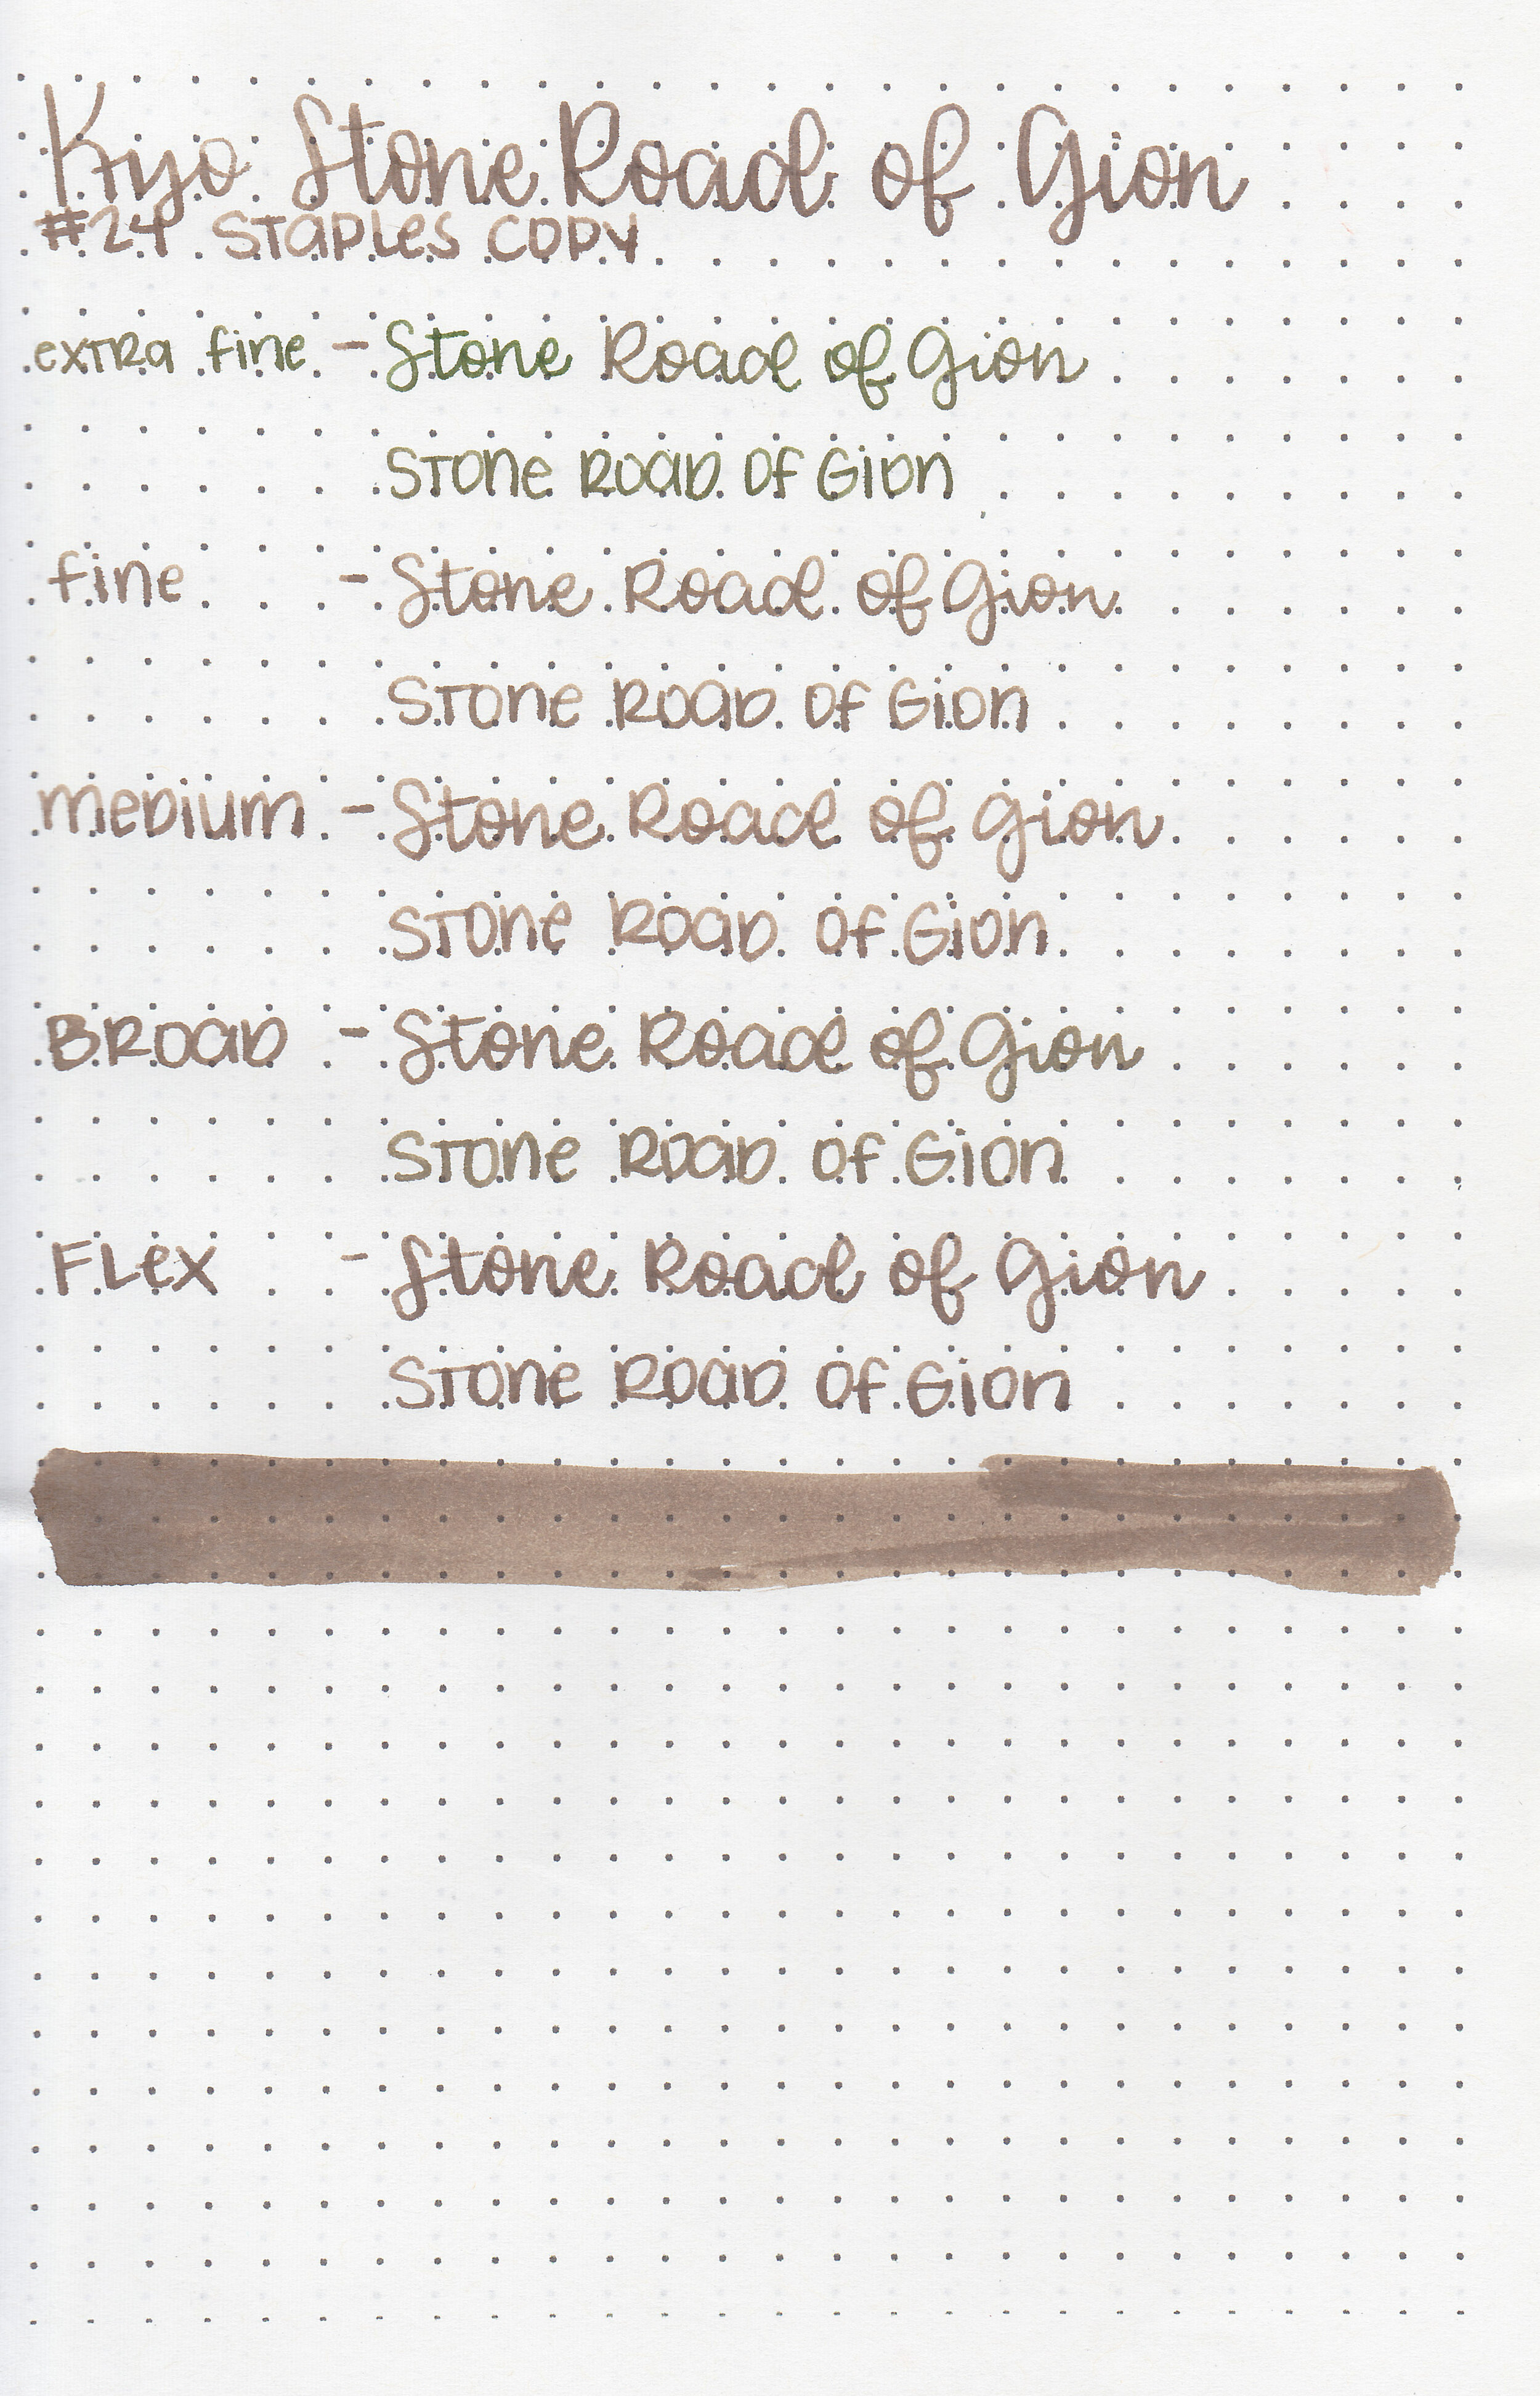 Kyo Stone Road of Gion
#24 STAPLES COPY
extra fine - Stone Road of Gion
STONE ROAD OF GION
fine - Stone Road of Gion
STONE ROAD OF GION
MEDIUM - Stone Road of Gion
STONE ROAD OF GION
BROAD - Stone Road of Gion
STONE ROAD OF GION
FLEX - Stone Road of Gion
STONE ROAD OF GION